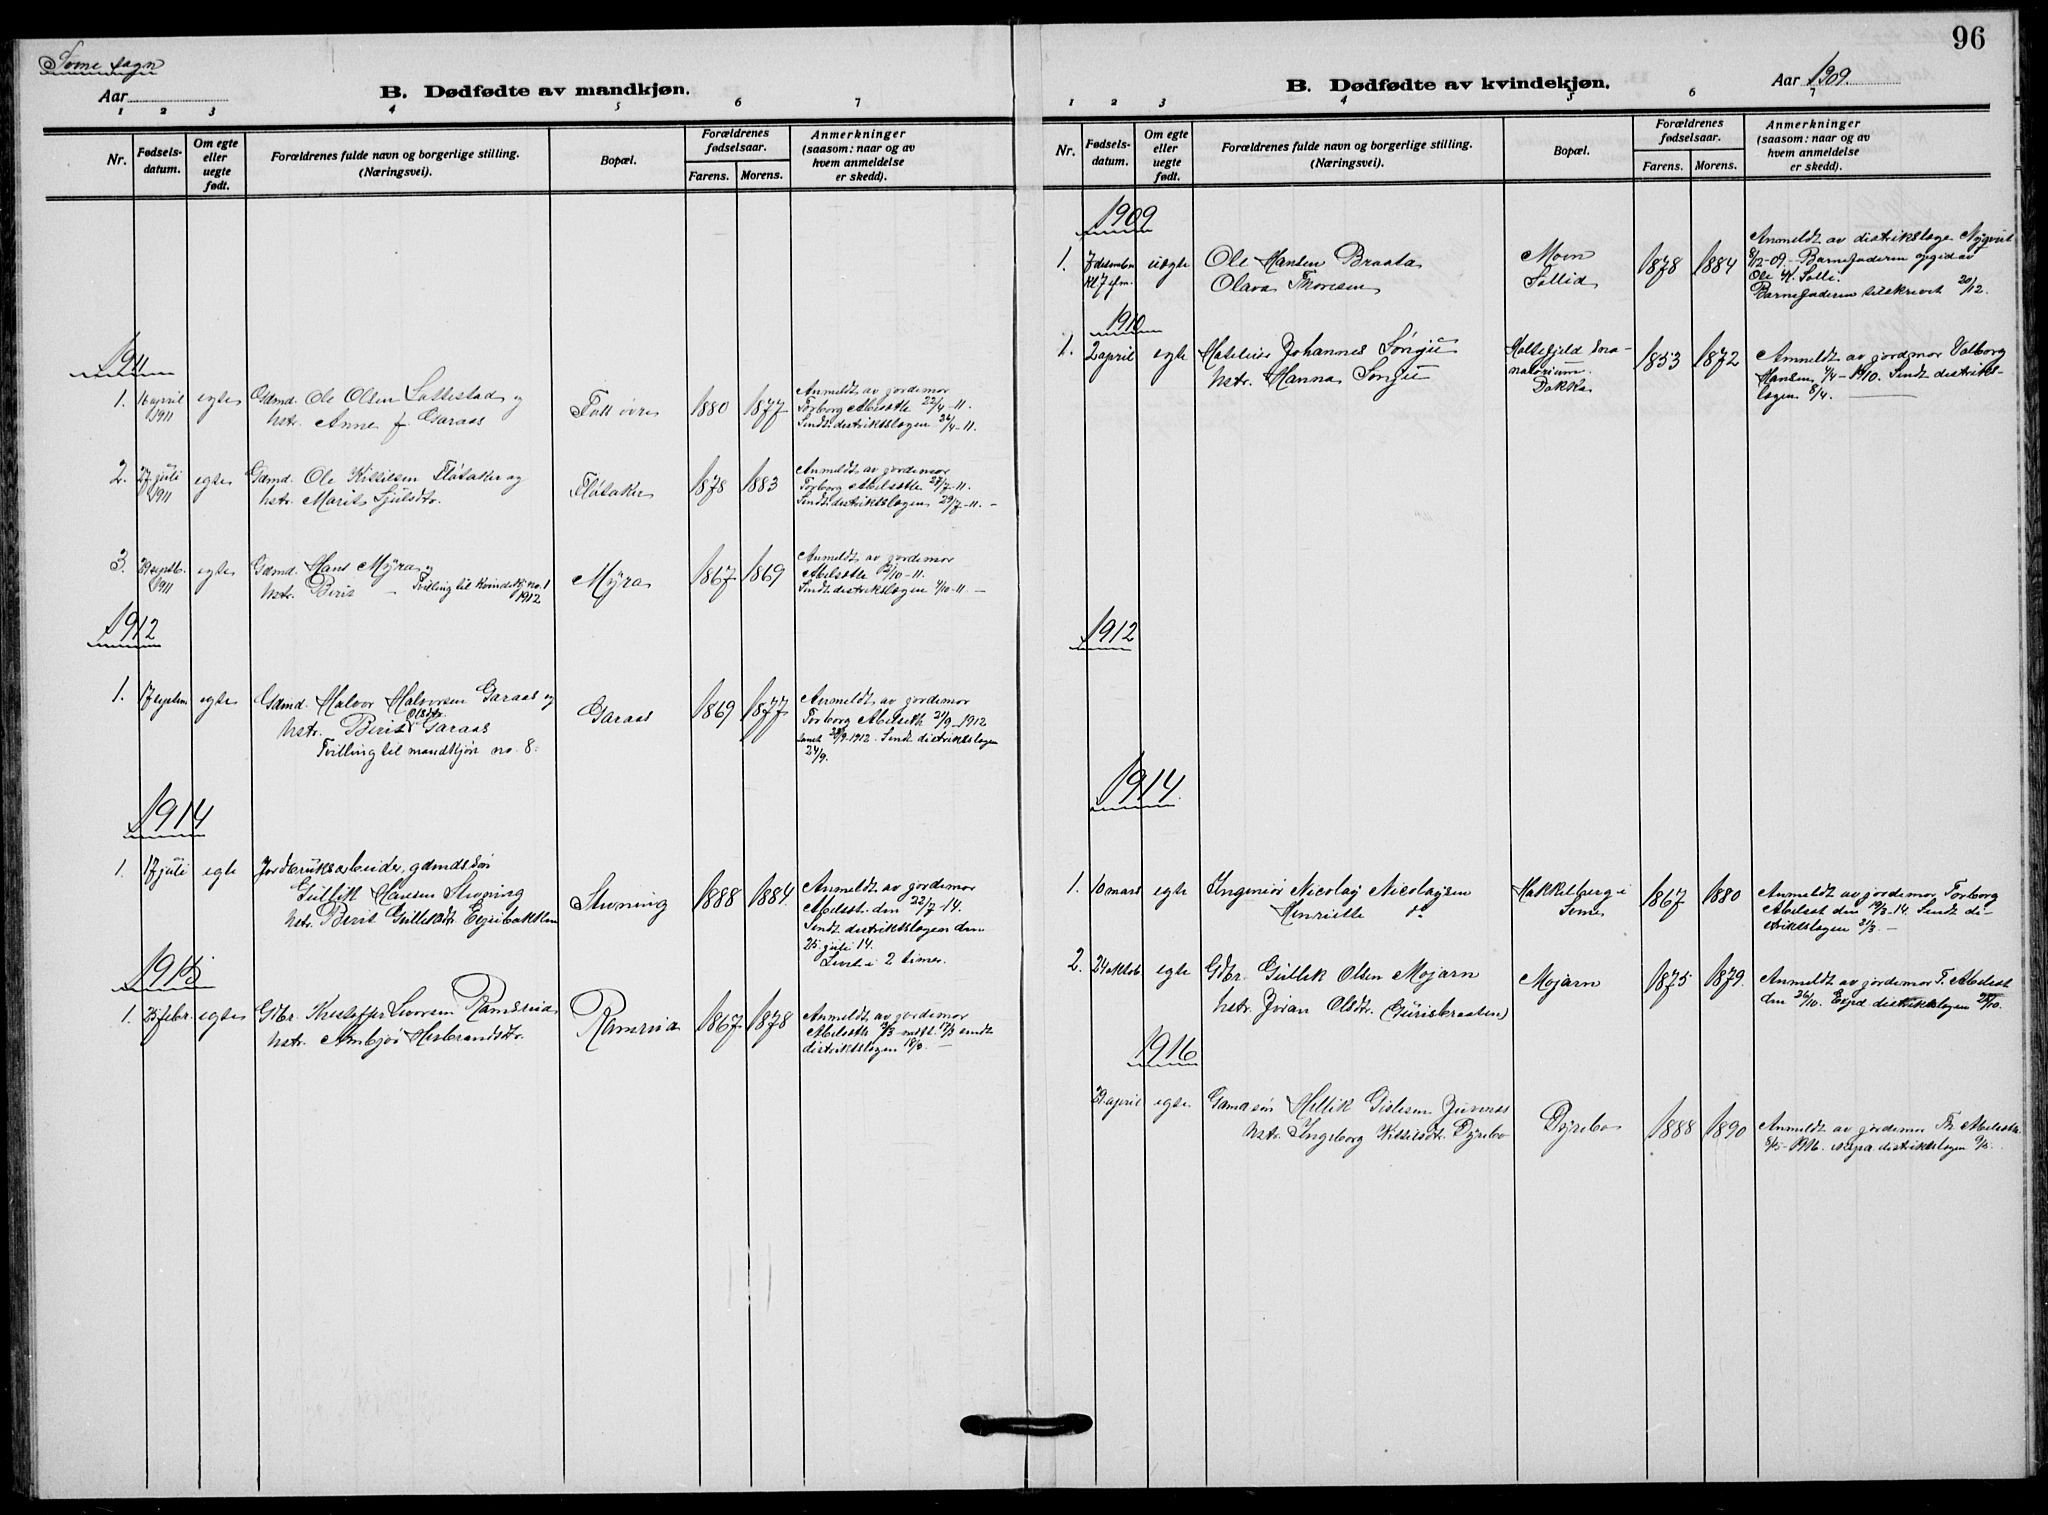 sogn
Aar
B. Dødfødte av mandkjøn.
1 2 3 4 5 6 7
Nr.
Fødsels-
datum.
Om egte
eller
uegte
født.
Forældrenes fulde navn og borgerlige stilling.
(Næringsvei).
Bopæl.
Forældrenes
fødselsaar.
Farens. Morens.
Anmerkninger
(saasom: naar og av
hvem anmeldelse
er skedd).
1911
1. 16 april 1911 egte
Gdmd. Ole Olsen og
hstr. Anne f. Garaas
1880 1877
Anmeldt av jordemor
Torborg Abelsæth 22/4-11.
Sendt distriktslægen 26/4-11.
2. 27 juli 1911 egte
Gdmd. Ole Kittilsen Flataker og
hstr. Marit
Flataker
1878 1883
Anmeldt av jordemor
Torborg 27/7-11.
Sendt distriktslægen 29/7-11.
3. 29 septb. 1911 egte
Gdmd. Hans Myra og
hstr. Berit - Tvilling til kvindekj. no. 1
1912
Myra
1867 1869
Anmeldt av jordemor
Sendt distriktslægen
1912
1. 17 septem egte
Gdmd. Halvor Halvorsen Garaas og
Olsdtr.
hstr. Berit Garaas
Tvilling til mandkjøn no. 8.
Garaas
1869 1877
Anmeldt av jordemor
Torborg Abelseth 21/9-1912
Sendt distriktslægen
24/9.
1914
1. 17 juli egte
Jordbruksarbeider, gdmdssøn
Gullik Hansen
hstr. Berit Gulliksdtr.
1888 1884.
Anmeldt av jordemor
Abelset den 22/7-14.
Sendt distriktslægen den
25 juli 14.
Levet i 2 timer.
1915
1. 25 febr. egte
Gbr. Kristoffer Ramsrud
hstr. Ambjør Herbrandsdtr.
Ramsrud
1867 1878
Anmeldt av jordemor
sendt
distriktslægen 18/3.
96
Aar 1909.
B. Dødfødte av kvindekjøn.
1 2 3 4 5 6 7
Nr.
Fødsels-
datum.
Om egte
eller
uegte
født.
Forældrenes fulde navn og borgerlige stilling.
(Næringsvei).
Bopæl.
Forældrenes
fødselsaar.
Farens. Morens.
Anmerkninger
(saasom: naar og av
hvem anmeldelse
er skedd).
1909
1. 7 desember kl 7 efm. uegte
Ole Hansen Braata
Olava Thoresen
Moen
Sollid
1878 1884
Anmeldt av distriktslæge Nyqvist
8/12-09. Barnefaderen opgid av
Ole H. Solli.
Barnefaderen tilskrevet 20/12.
1910
1. 2 april egte
Johannes
hstr. Hanna
Dokka
1853 1872
Anmeldt av jordmor Valborg
Hansen 4/4-1910. Sendt distrikts-
lægen 8/4.
1912
1914
1. 10 mars egte
Ingeniør Nicolay Nicolaysen
Henriette do
Hakkelberg i
1867 1880
Anmeldt av jordemor Torborg
Abelset den 19/3-14. Sendt di-
striktslægen 21/3.
2. 24 oktob egte
Gbr. Gullik Olsen Mojarn
hstr. Jøran Olsdtr. (Gurisbraaten)
Mojarn
1875 1879.
Anmeldt av jordemor T. Abelset
den 26/10. Expd distriktslægen
1916
29 april egte
Gdmdsøn
hstr. Ingeborg Kittilsdtr. Dyrebo
Dyrebo
1888 1890
Anmeldt av jordemor Th. Abelseth
8/5-1916. distriktslægen 9/5.